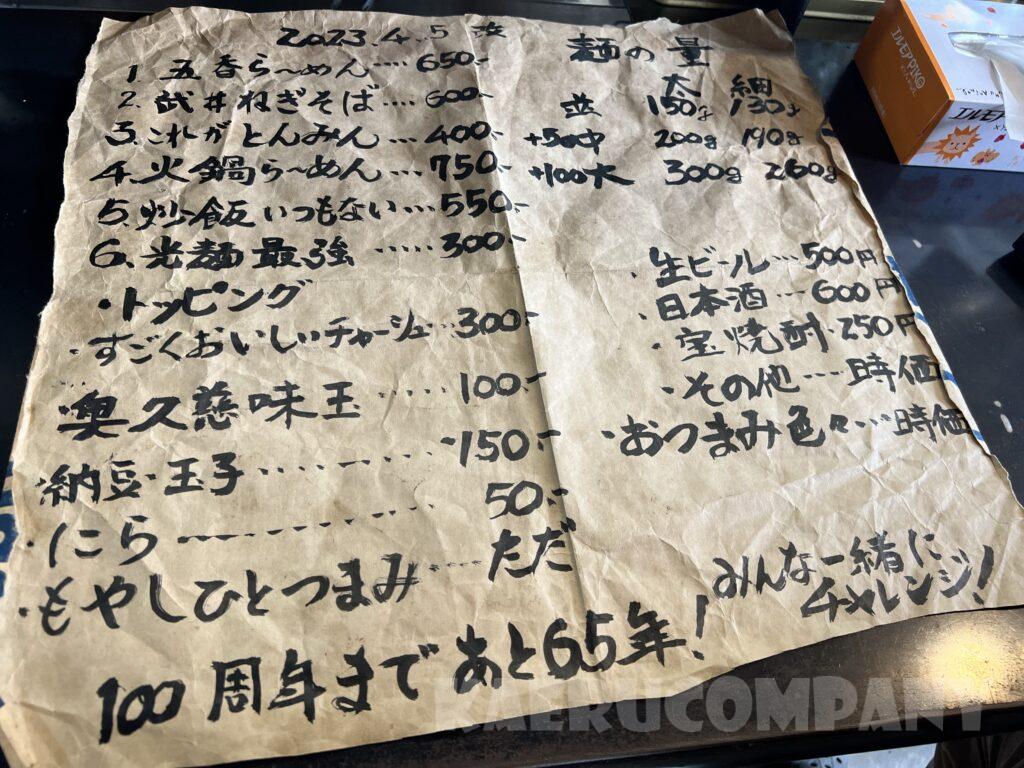 2023.4.5 改
1. 五香ら〜めん‥‥650-
2. 武井ねぎそば‥‥600-
3. これがとんみん…400-
4. 火鍋ら〜めん…750-
5. 炒飯いつもない…550-
6. 光麺最強‥‥‥300-
・トッピング
・すごくおいしいチャーシュー…300-
・奥久慈味玉‥‥‥100-
・納豆・玉子‥‥‥‥150-
にら‥‥‥‥50-
・もやしひとつまみ‥‥ただ
100周年まであと65年!
麺の量
太 細
並 150g 130g
+50中 200g 190g
+100大 300g 260g
・生ビール…500円
・日本酒…600円
・宝焼酎・250円
・その他…時価
・おつまみ色々…時価
みんな一緒に
チャレンジ!
エルモアPIKO
エルモア
KAERUCOMPANY